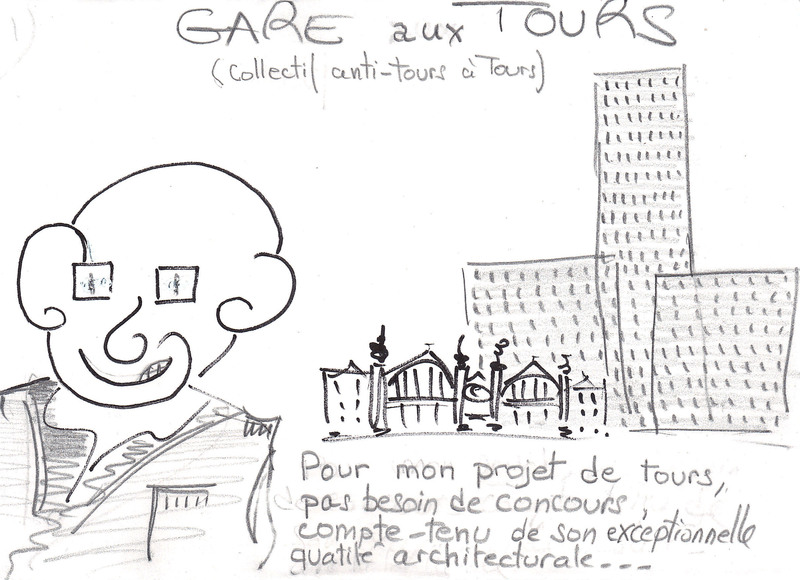 GARE aux TOURS
(Collectif anti-tours à Tours)
Pour mon projet de tours,
pas besoin de concours,
compte-tenu de son exceptionnelle
qualité architecturale...